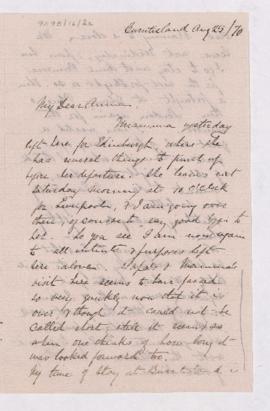 Burntisland Aug 25/70
My Dear Anna
Mamma yesterday
left here for Edinburgh, where she
has several things to
before her departure. She leaves next
Saturday morning at 10 o'clock
for Liverpool, & I am going over
then of course to say good bye to
her. So you see I am now again
to all intents & purposes left
here alone. Papa's & Mamma's
visit here seems to have passed
so very quickly now that it is
over & though it could not be
called short, still it seems so
when one thinks of how long it
was looked forward to.
My time of stay at Burntisland is